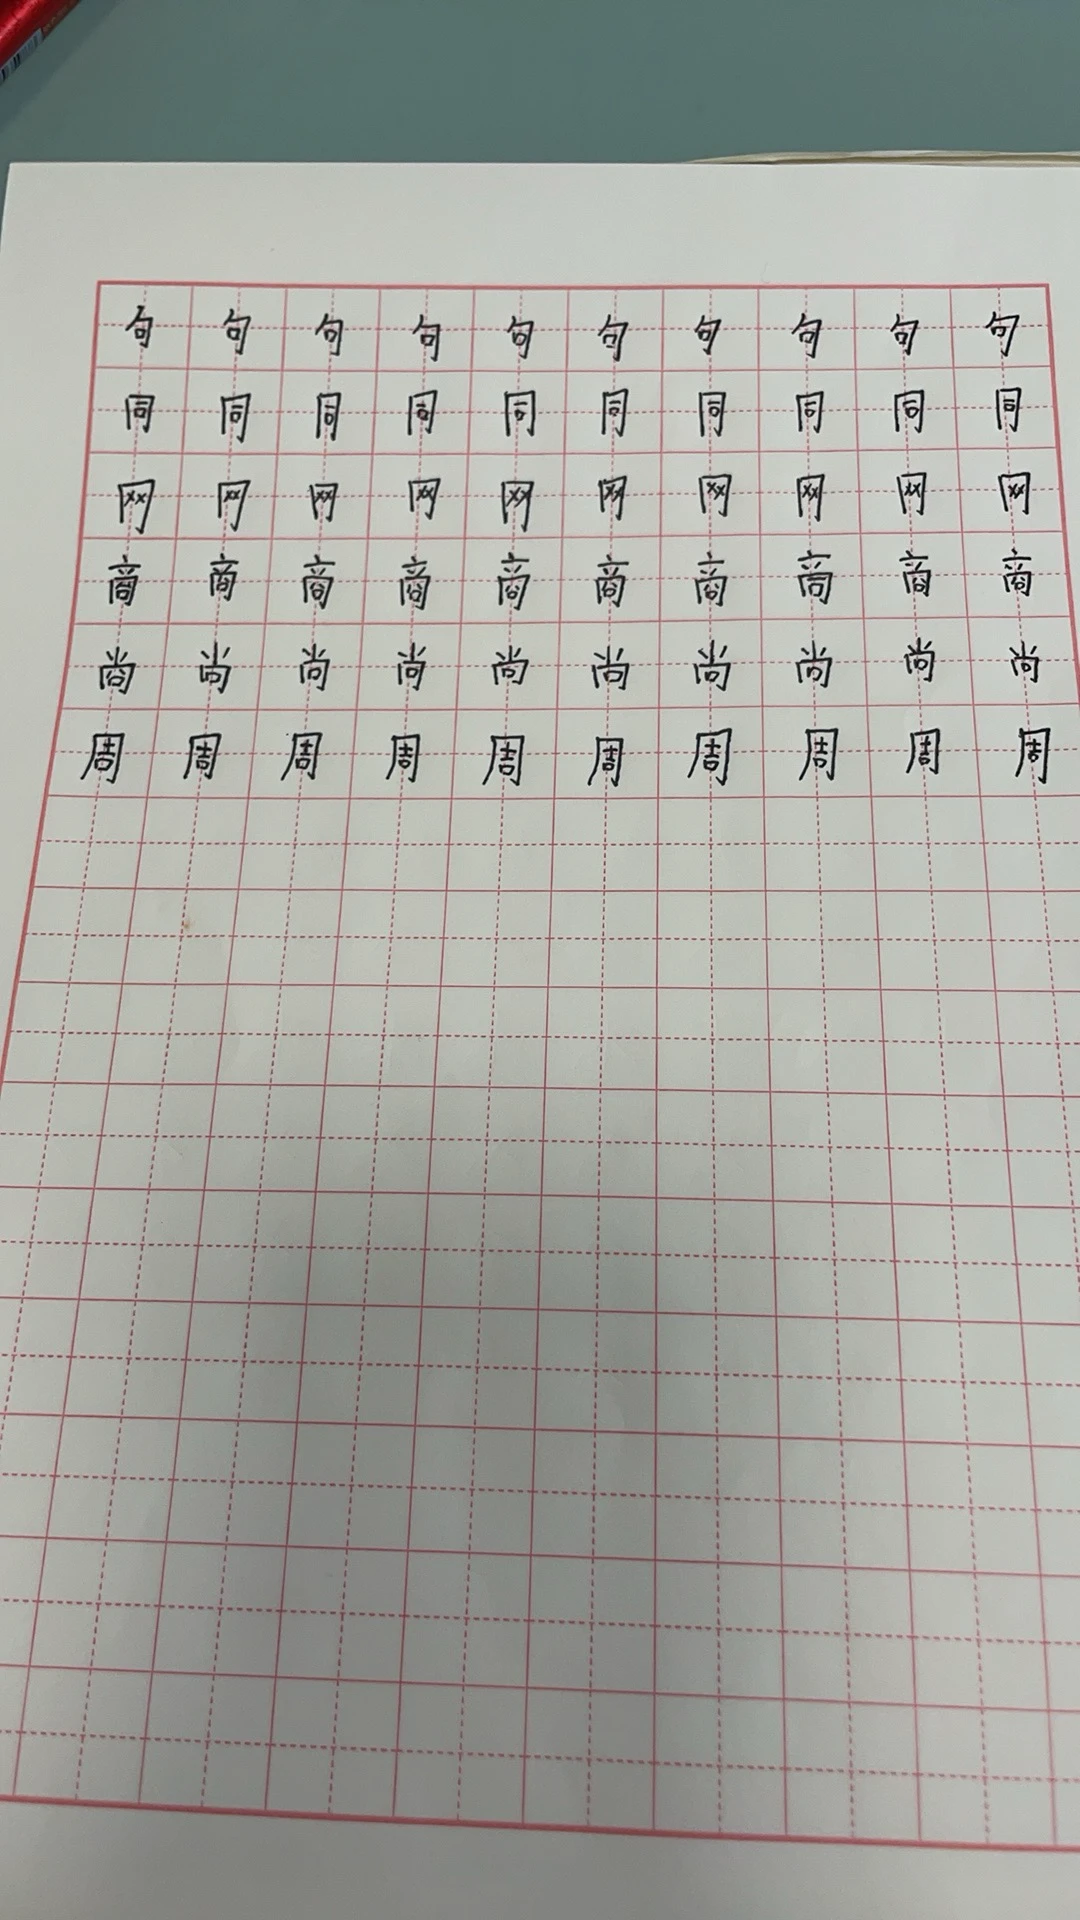 句句句句句句句句句句
同同同同同同同同同同
网网网网网网网网网网
商商商商商商商商商商
尚尚尚尚尚尚尚尚尚尚
周周周周周周周周周周